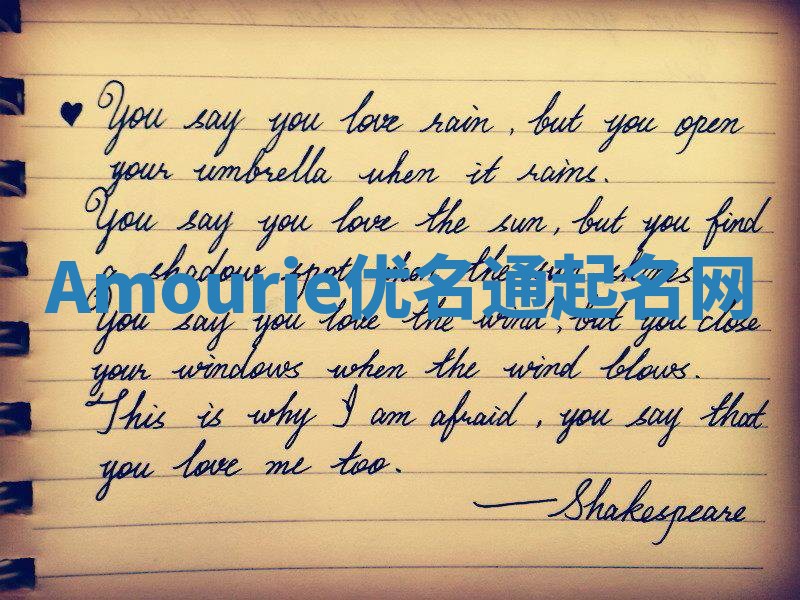 ♥ You say you love rain, but you open
your umbrella when it rains.
You say you love the sun, but you find
a shadow spot when the sun shines
Amourie优名通起名网
You say you love the wind, but you close
your windows when the wind blows.
This is why I am afraid, you say that
you love me too.
—Shakespeare